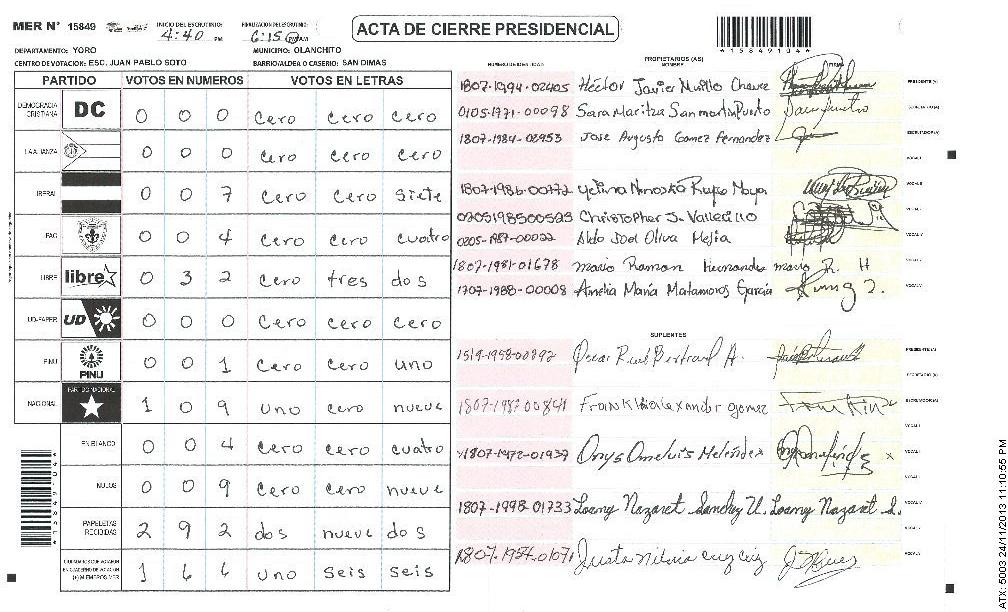 MER N° 15849
INICIO DEL ESCRUTINIO:
4:40 PM
FINALIZACION ESCRUTINIO:
6:15 PM
ACTA DE CIERRE PRESIDENCIAL
*15849104*
DEPARTAMENTO: YORO
MUNICIPIO: OLANCHITO
CENTRO DE VOTACION: ESC. JUAN PABLO SOTO
BARRIO/ALDEA O CASERIO: SAN DIMAS
PARTIDO VOTOS EN NUMEROS VOTOS EN LETRAS
DEMOCRACIA CRISTIANA DC 0 0 0 cero cero cero
LA ALIANZA 0 0 0 cero cero cero
LIBERAL 0 0 7 cero cero siete
PAC 0 0 4 cero cero cuatro
LIBRE libre 0 3 2 cero tres dos
UD-FAPER UD 0 0 0 cero cero cero
PINU PINU 0 0 1 cero cero uno
NACIONAL PARTIDO NACIONAL 1 0 9 uno cero nueve
EN BLANCO 0 0 4 cero cero cuatro
NULOS 0 0 9 cero cero nueve
PAPELETAS RECIBIDAS 2 9 2 dos nueve dos
CIUDADANOS QUE VOTARON EN CUADERNO DE VOTACION (+) MIEMBROS MER 1 6 6 uno seis seis
NUMERO DE IDENTIDAD
PROPIETARIOS (AS)
NOMBRE
FIRMA
1807-1994-02405 Héctor Javier Murillo Chavez PRESIDENTE (A)
Sara Maritza Sanmartin Puerto SECRETARIO (A)
1807-1984-02953 Jose Augusto Gomez Fernandez ESCRUTADOR (A)
VOCAL I
1807-1986-00772 VOCAL II
0205198500525 Christopher J. Vallecillo VOCAL III
0205-1987-00022 Aldo Joel Oliva Mejia VOCAL IV
1807-1981-01678 mario Ramon Hernandes mario R. H VOCAL V
1707-1988-00008 Amelia María Matamoros García
SUPLENTES
1519-1958-00392 Oscar A. PRESIDENTE (A)
SECRETARIO (A)
1807-1987-00841 Frank gomez ESCRUTADOR (A)
VOCAL I
1807-1972-01937 Onys Omeluis Melendez VOCAL II
1807-1998-01733 Loany Nazaret Sanchez U. Loany Nazaret S.
VOCAL V
Justa
ATX: 5003 24/11/2013 11:10:55 PM